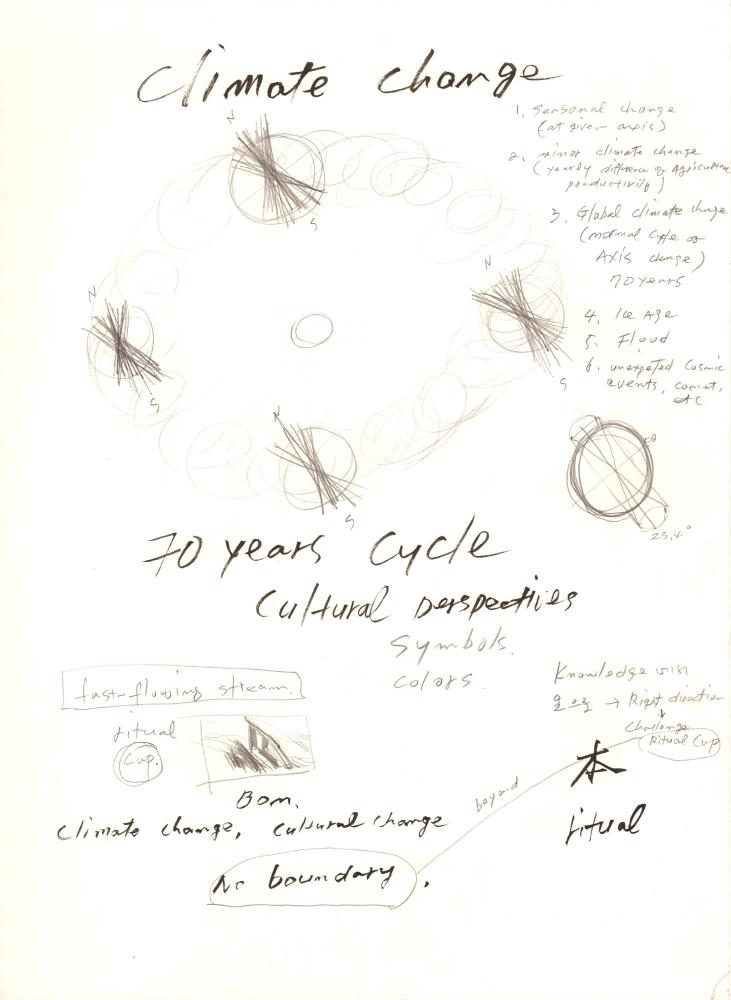 Climate change
1. Seasonal change
(at given axis)
2. minor climate change
(yearly difference of Agriculture
productivity)
3. Global climate change
(normal cycle of
AXIS change)
70 years
4. Ice Age
5. Flood
6. unexpected Cosmic
events, comet,
etc
N
S
N
S
N
S
N
S
23.4°
70 years Cycle
Cultural perspectives
Symbols.
colors.
fast-flowing stream.
ritual
Cup.
Bom.
Climate change, Cultural change
No boundary.
beyond
Knowledge
→ Right direction
Challenge
Ritual Cup
本
ritual